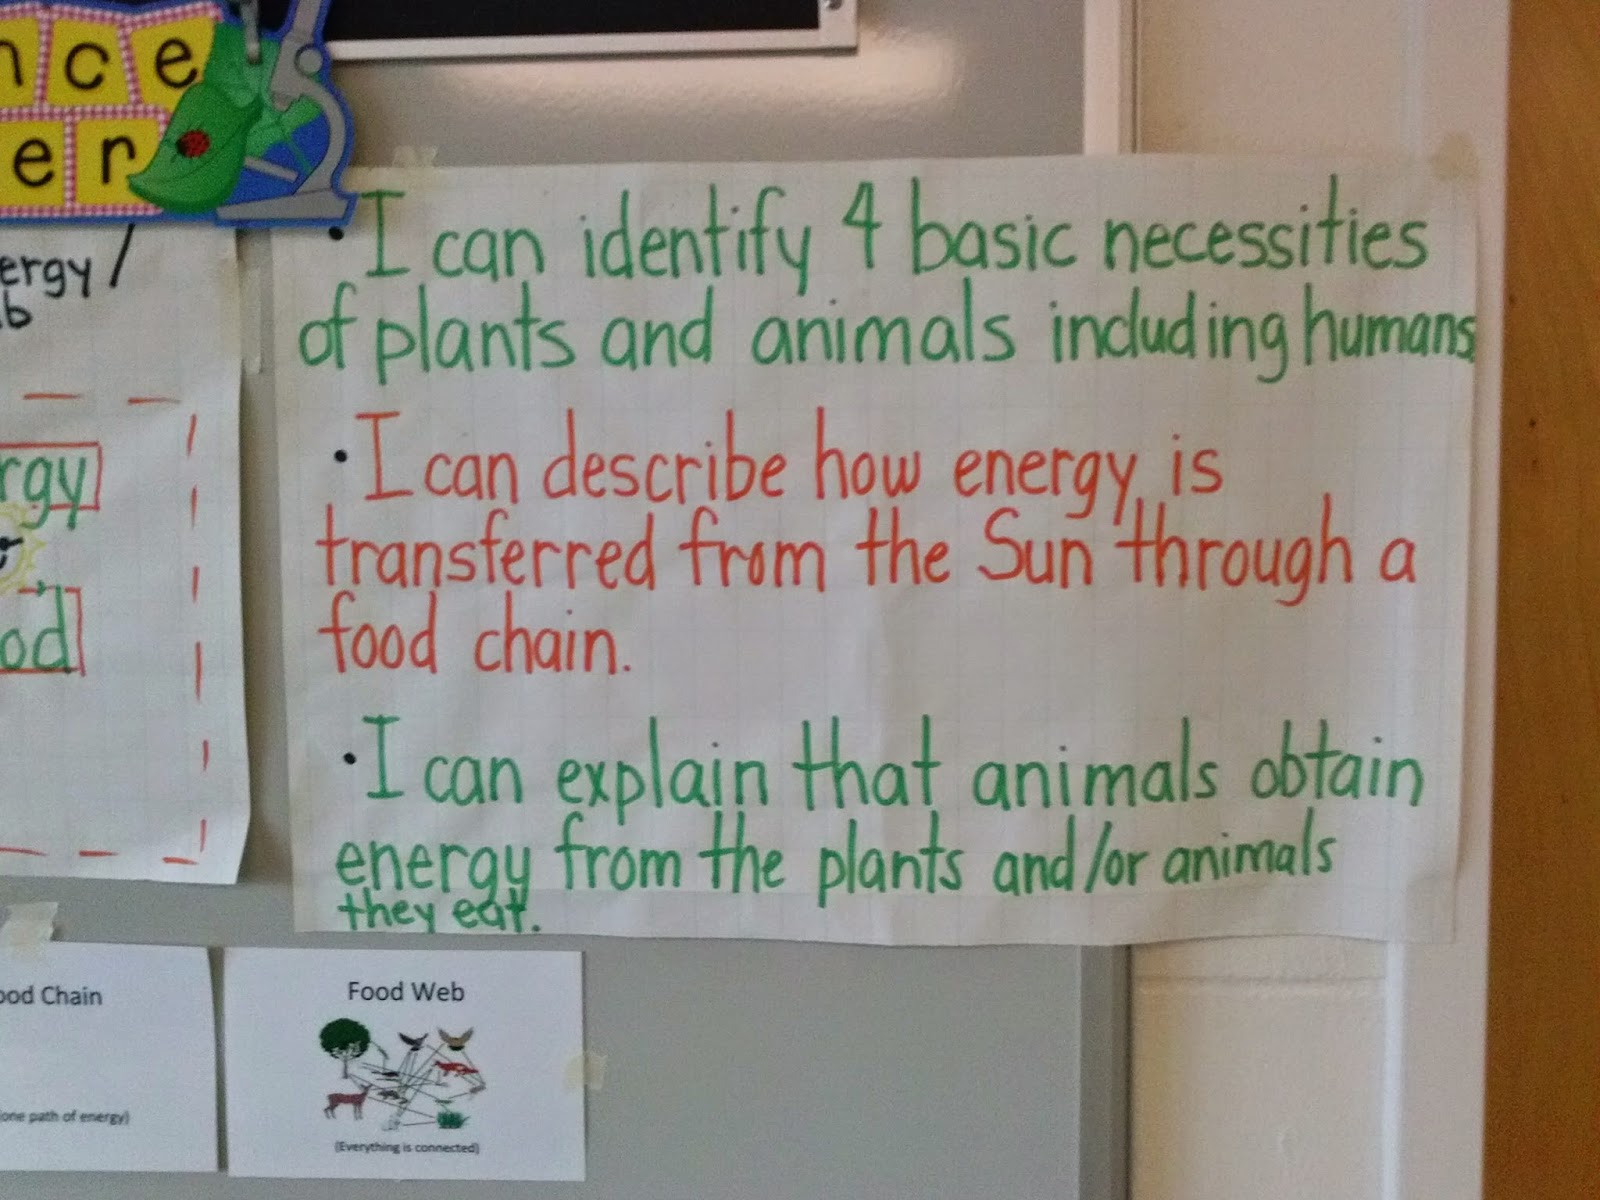 nce
er
ergy/
b
rgy
od
• I can identify 4 basic necessities
of plants and animals including humans
• I can describe how energy is
transferred from the Sun through a
food chain.
• I can explain that animals obtain
energy from the plants and/or animals
they eat.
ood Chain
(one path of energy)
Food Web
(Everything is connected)